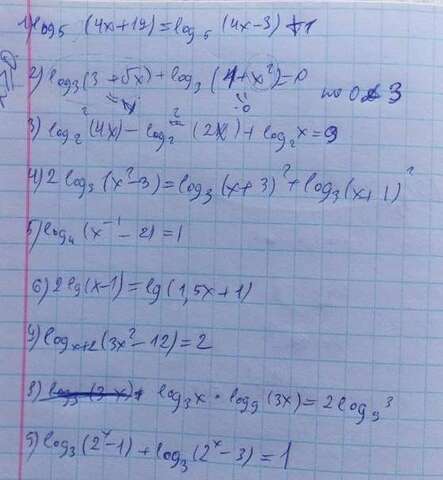 1) log₅ (4x+19) = log₅ (4x-3) +1
2) log₃(3 + 5x) + log₃ (4+x²)=0
по 0 3
3) log₂²(4x) - log₂² (2x) + log₂x = 9
4) 2 log₃ (x²-3) = log₃(x+3)² + log₃(x+1)²
5) log₄ (x⁻¹ - 2) = 1
6) 2 lg (x-1) = lg (1,5x+1)
7) log x+2 (3x²-12) = 2
8) log₃x · log₉ (3x) = 2 log₉³
9) log₃(2ˣ-1) + log₃(2ˣ-3) = 1